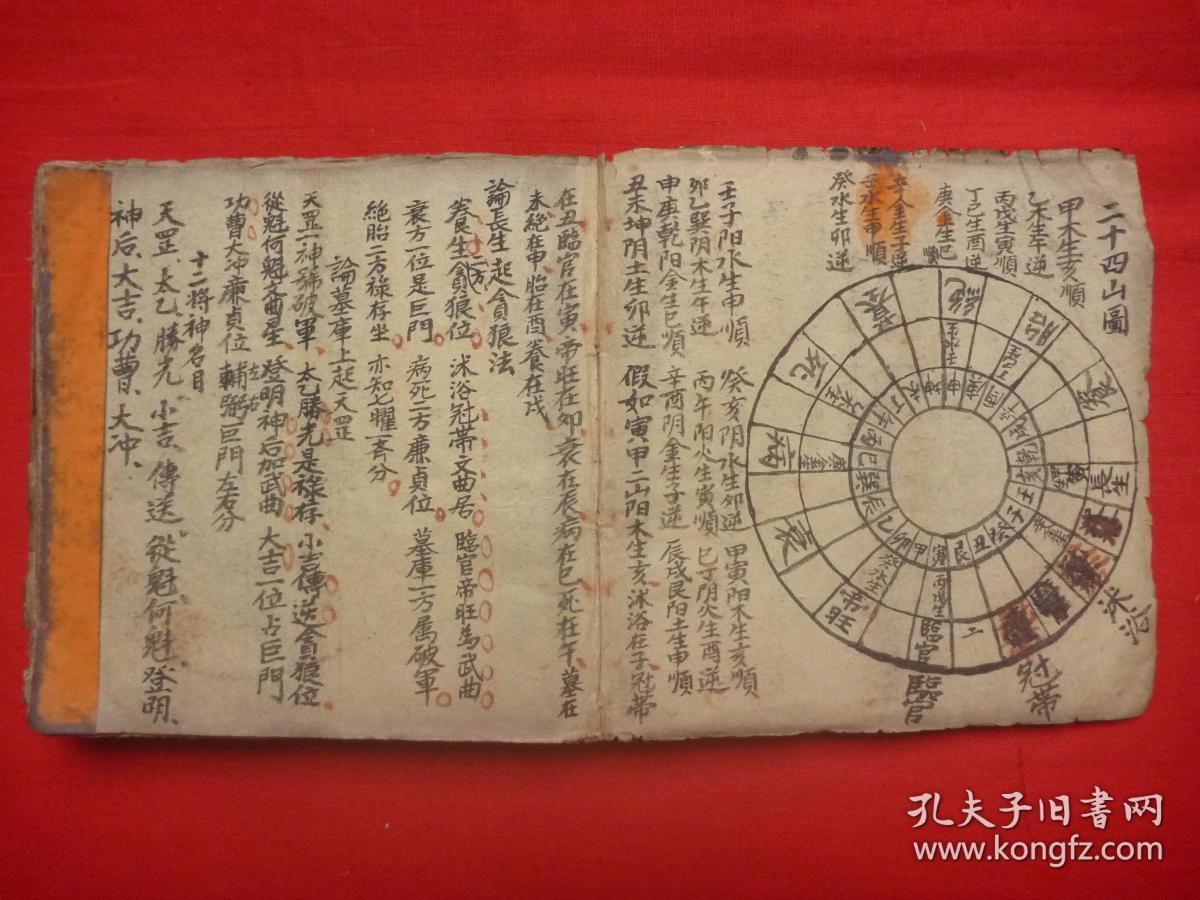 二十四山圖
甲木生亥順
乙木生午逆
丙戊生寅順
丁己生酉逆
庚金生巳順
辛金生子逆
壬水生申順
癸水生卯逆
絶
胎
養
長生
沐浴
冠帶
臨官
臨官
帝旺
衰
病
死
墓
壬子阳水生申順 癸亥阴水生卯逆 甲寅阳木生亥順
卯乙巽阴木生午逆 丙午阳火生寅順 巳丁阴火生酉逆
申庚乾阳金生巳順 辛酉阴金生子逆 辰戌艮阳土生申順
丑未坤阴土生卯逆 假如寅甲二山阳木生亥沐浴在子冠帶
在丑臨官在寅帝旺在卯衰在辰病在巳死在午墓在
未絶在申胎在酉養在戌
論長生起貪狼法
養生二方貪狼位 沐浴冠帶文曲居 臨官帝旺為武曲
衰方一位是巨門 病死二方廉貞位 墓庫一方属破軍
絶胎二方祿存坐 亦知七曜一斉分
論墓庫上起天罡
天罡一神號破軍 太乙勝光是祿存 小吉傳送貪狼位
從魁何魁文曲星 登明神后加武曲 大吉一位占巨門
功曹大冲廉貞位 輔弼巨門左右分
十二将神名目
天罡、太乙、勝光、小吉、傳送、從魁何魁、登明、
神后、大吉、功曹、大冲、
孔夫子旧书网
www.kongfz.com